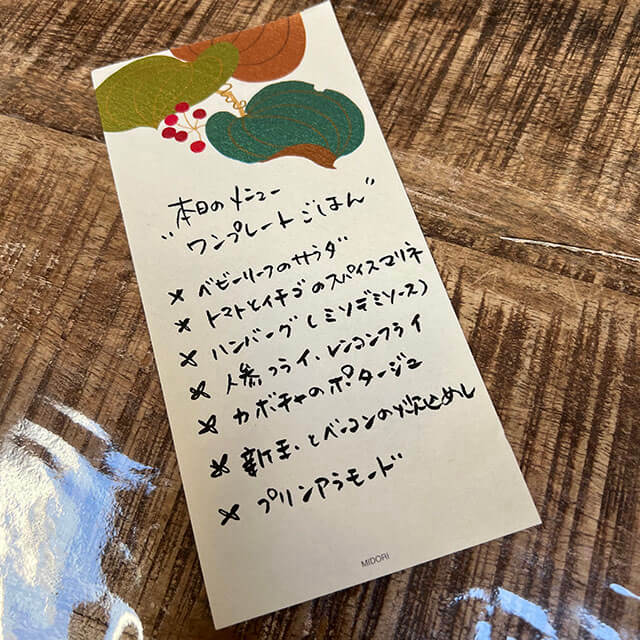 本日のメニュー
"ワンプレートごはん"
× ベビーリーフのサラダ
× トマトとイチゴのスパイスマリネ
× ハンバーグ(ミソデミソース)
× 人参フライ・レンコンフライ
× カボチャのポタージュ
× 新玉とベーコンの炊込めし
× プリンアラモード
MIDORI